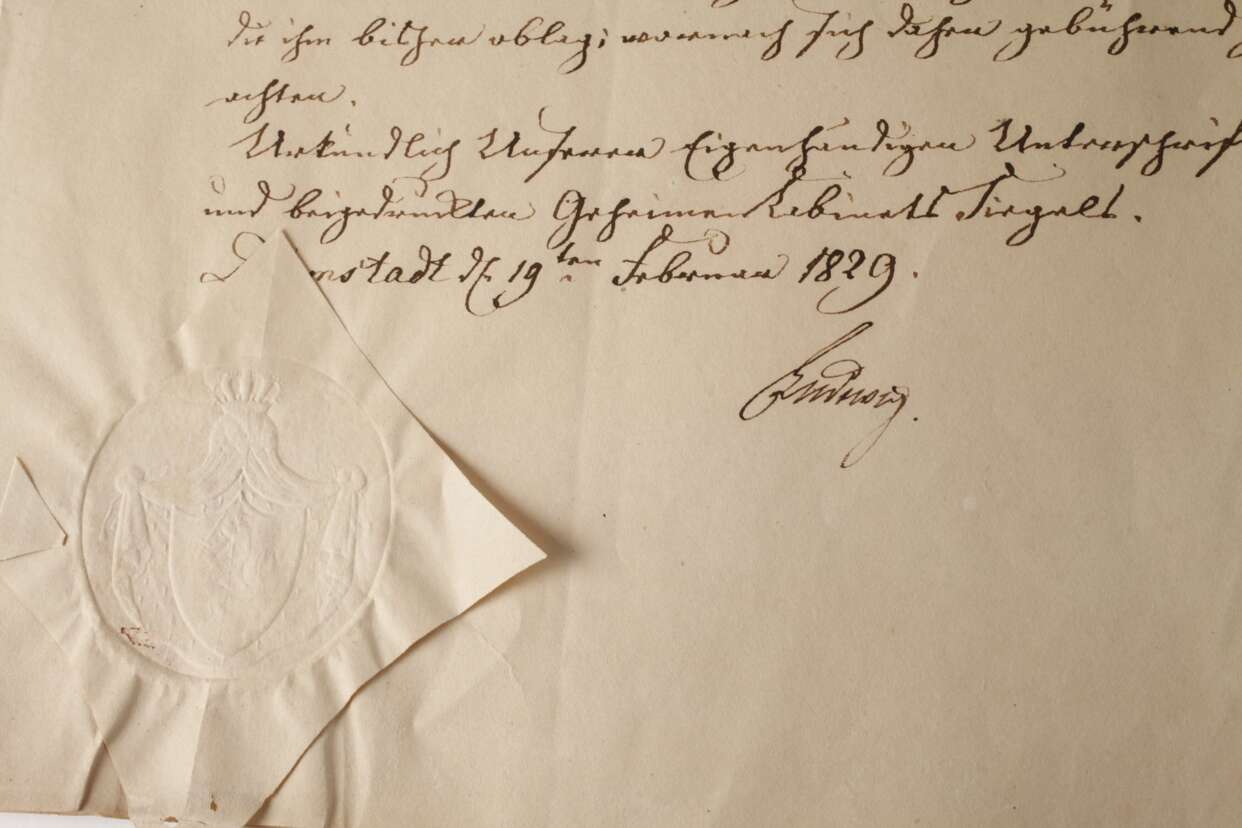 die ihm bisher oblag; wornach sich daher gebührend
achten.
Urkundlich Unserer Eigenhändigen Unterschrif
und beigedruckten Geheimen Kabinets Siegels.
D mstadt d. 19ten Februar 1829.
Ludwig.